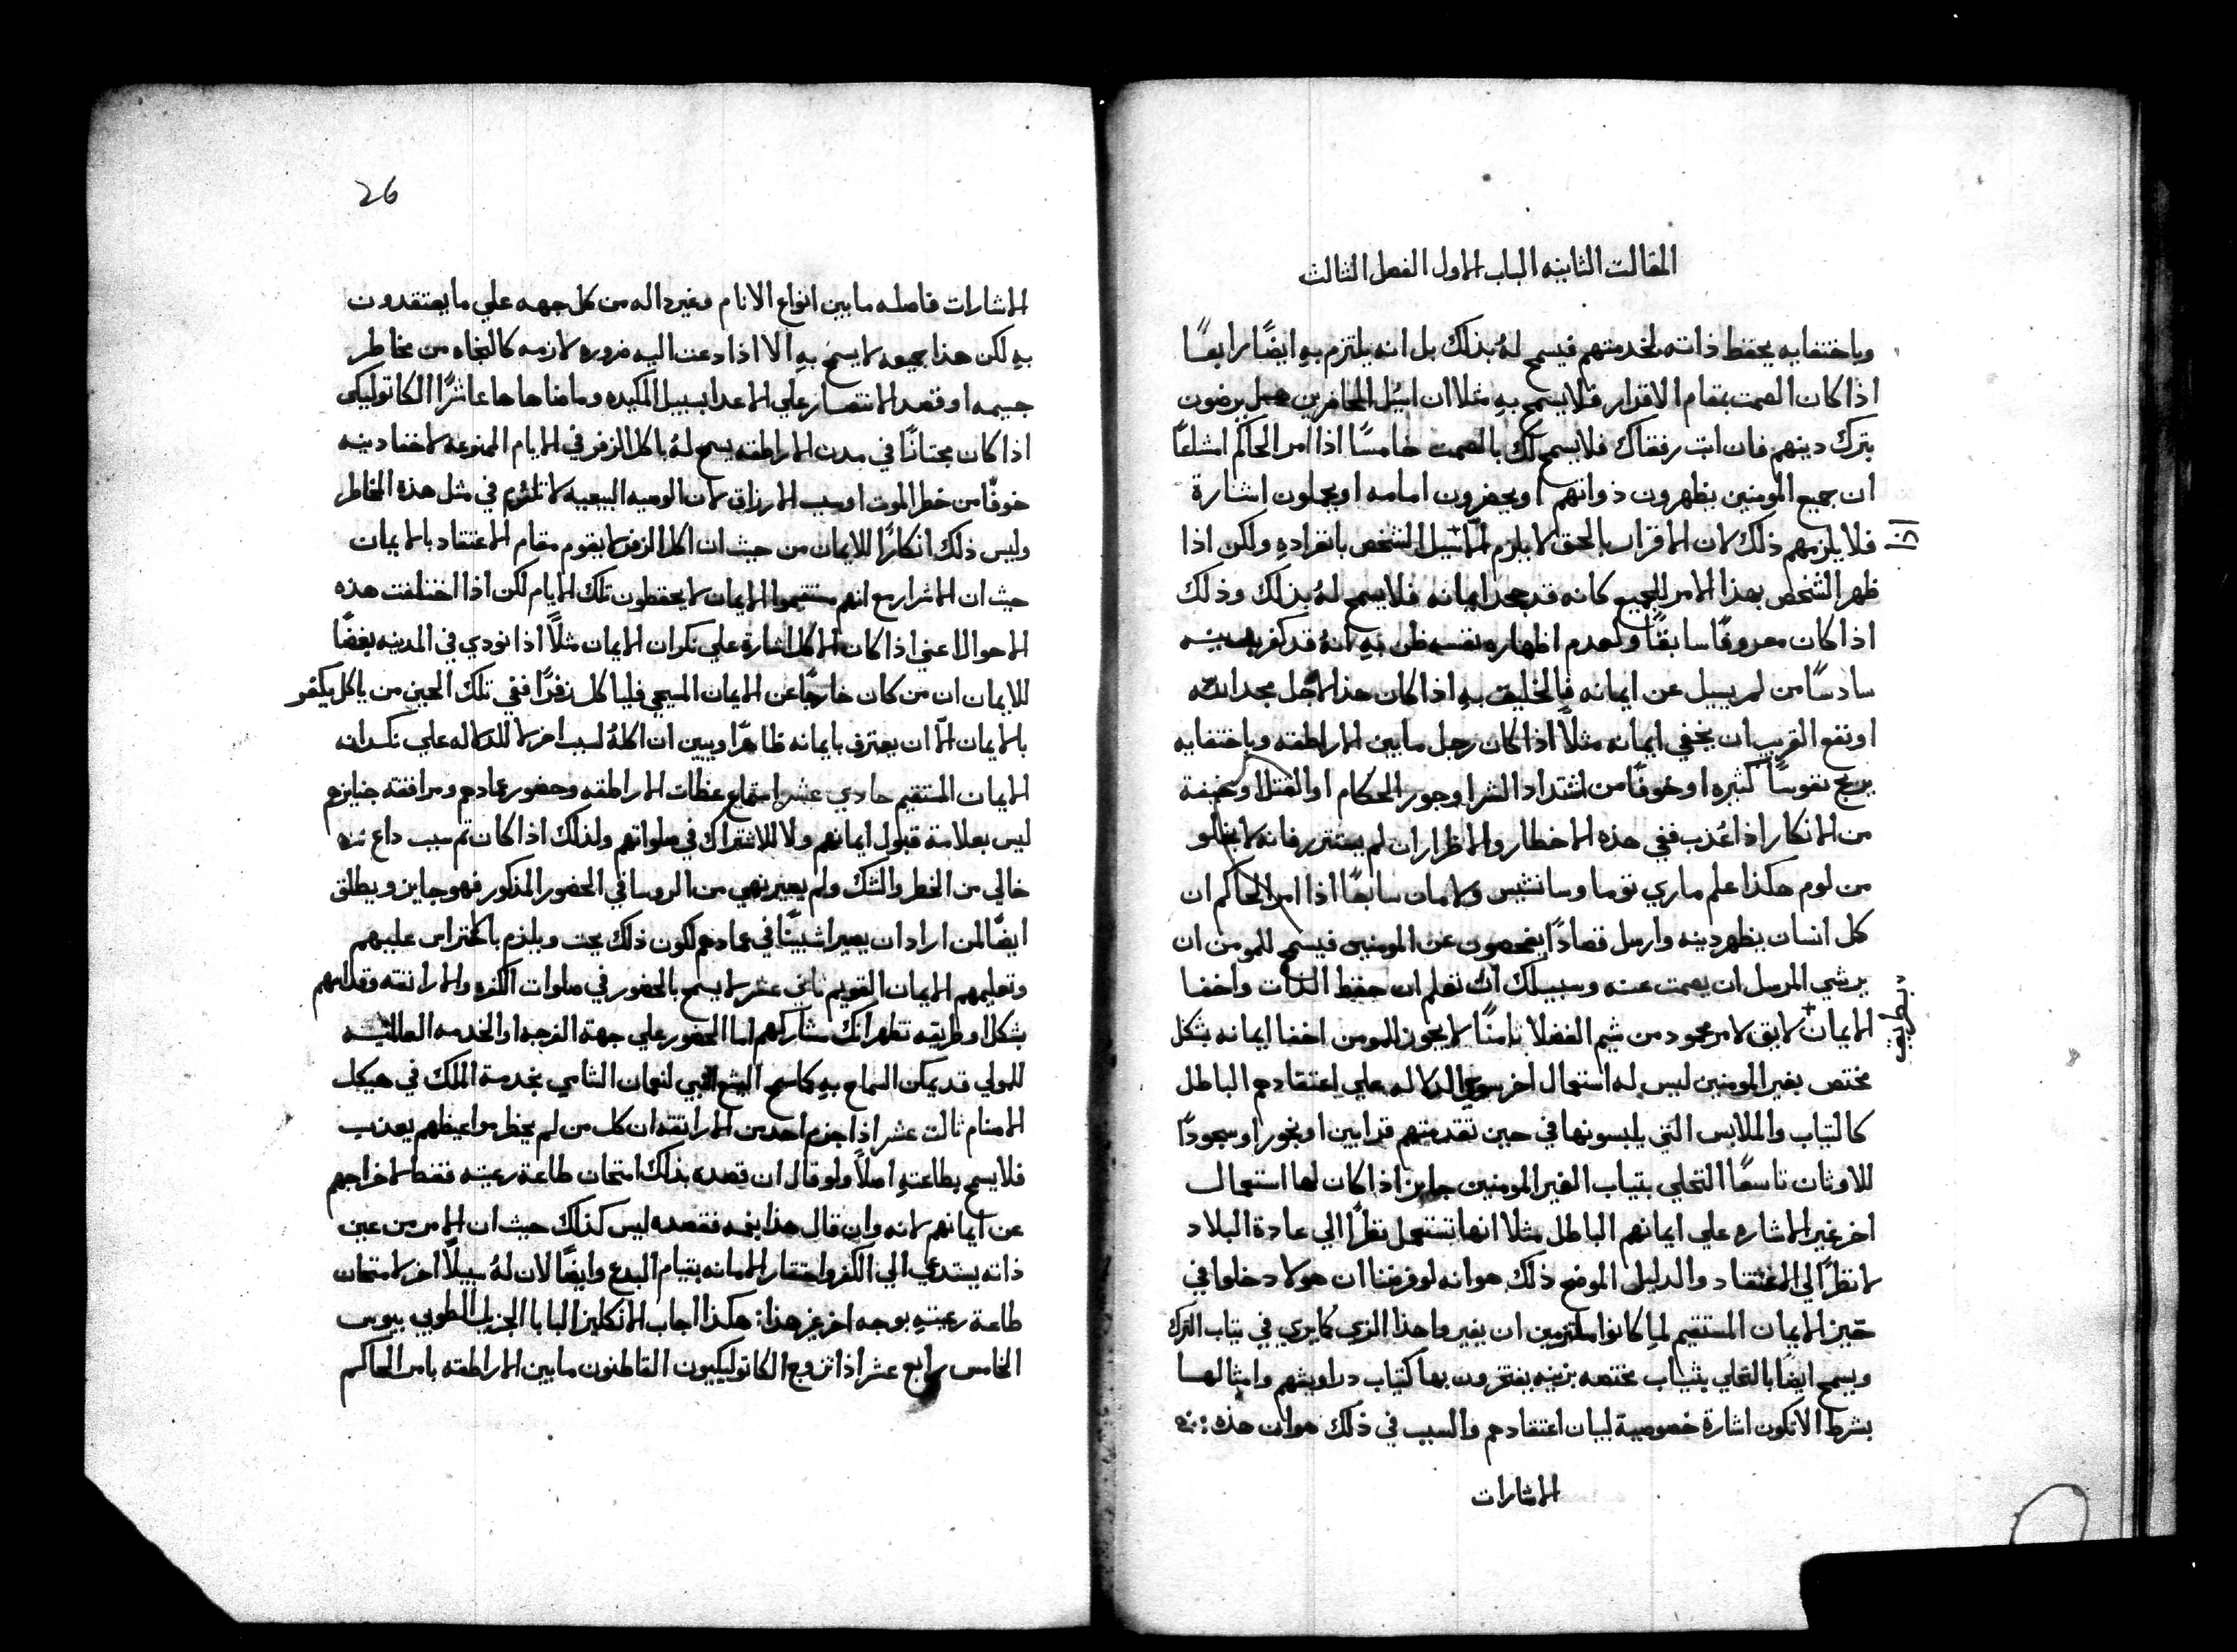 المقالت الثانيه الباب الاول الفصل الثالث
وباختفايه يحفظ ذاته لخدمتهم فيسمح لهُ بذلك بل انه يلتزم بهِ ايضًا رابعًا
اذا كان الصمت بمقام الاقرار فلا يسمح بهِ مثلا ان اسُل الحاضرين هل يرضون
بترك دينهم فان انت رفقاك فلا يسمح لك بالصمت خامسًا اذا امر الحاكم اشاعًا
ان جميع المومنين يظهرون ذواتهم او يحضرون امامه او يعملون اشارة
فلا يلزمهم ذلك لان الاقرار بالحق لا يلزم الا سيل الشخص بانفرادهِ ولكن اذا
اذا
ظهر الشخص بهذا الامر للجميع كانه قد جحد ايمانه فلا يسمح لهُ بذلك وذلك
اذا كان معروفًا سابقًا ولعدم اظهاره نفسه ظن بهِ انهُ قد كفر بدينه
سادسًا من لم يسيل عن ايمانه فالخليق بهِ اذا كان هذا لاجل مجد الله
او نفع القريب ان يخفي ايمانه مثلاً اذا كان رجل ما بين الاراطقه وباختفايه
يربح نفوسًا كثيره او خوفًا من اشتداد الشر او جور الحكام او القتل او خيفة
من الانكار اذا عُذب ففي هذه الاخطار والاضرار ان لم يستتر فانه لا يخلو
من لوم هكذا علم ماري توما وسانشيس ولايمان سابعًا اذا امر الحاكم ان
كل انسان يظهر دينه وارسل قصادًا يفحصون عن المومنين فيسمح للمومن ان
يرشي المرسل ان يصمت عنه وسبيلك ان تعلم ان حفظ الذات واخفا
الايمان لايق لامر محمود من شيم الفضلا ثامنًا لا يجوز للمومن اخفا ايمانه بشكل
بطريق
مختص بغير المومنين ليس له استعمال اخر سوي الدلاله علي اعتقادهم الباطل
كالثياب والملابس التي يلبسونها في حين تقدمتهم قرابين او بخور او سجودًا
للاوثان تاسعًا التحلي بثياب الغير المومنين جايز اذا كان لها استعمال
اخر غير الاشاره علي ايمانهم الباطل مثلا انها تستعمل نظرًا الي عادة البلاد
لا نظرًا الي الاعتقاد والدليل الموضح ذلك هو انه لو فرضنا ان هولا دخلوا في
حيز الايمان المستقيم لما كانوا ملتزمين ان يغيروا هذا الزي كما يري في ثياب الترك
ويسمح ايضًا بالتحلي بثياب مختصه بزينه يفتخرون بها كثياب دراويشهم وامثالها
بشرط الا تكون اشارة خصوصية لبيان اعتقادهم والسبب في ذلك هو ان هذه
الاشارات
26
الاشارات فاصله ما بين انواع الانام وغير داله من كل جهه علي ما يعتقدون
بهِ لكن هذا جميعه لا يسمح بهِ الا اذا دعت اليه ضروره لازمه كالنجاه من مخاطر
جسيمه او قصد الانتصار علي الاعدا بسبيل المكيده وما ضاهاها عاشرًا الكاتوليكي
اذا كان مجتازًا في مدن الاراطقه يسمح لهُ باكل الزفر في الايام الممنوعه لاخفا دينه
خوفًا من خطر الموت او سبب الارزاق لان الوصيه البيعيه لا تلزم في مثل هذه المخاطر
وليس ذلك انكارًا للايمان من حيث ان اكل الزفر لا يقوم مقام الاعتقاد بالايمان
حيث ان الاشرار مع انهم مستقيموا الايمان لا يحفظون تلك الايام لكن اذا اختلفت هذه
الاحوال اعني اذا كان الاكل اشارة علي نكران الايمان مثلاً اذا نودي في المدينه بغضًا
للايمان ان من كان خارجًا عن الايمان المسيحي فلياكل زفرًا ففي تلك الحين من ياكل يكفر
بالايمان الّا ان يعترف بايمانه ظاهرًا ويبين ان اكلهُ لسبب اخر لا للدلاله علي نكرانه
الايمان المستقيم حادي عشر استماع عظات الاراطقه وحضور عمادهم ومرافقة جنايزهم
ليس بعلامة قبول ايمانهم ولا للاشتراك في صلواتهم ولذلك اذا كان تم سبب داع
خالي من الخطر والشك ولم يصير نهي من الروسا في الحضور المذكور فهو جايز ويطلق
ايضًا لمن اراد ان يصير اشبينًا في عمادهم لكون ذلك بحت ويلزم بالاحتراس عليهم
وتعليمهم الايمان القويم ثاني عشر لا يسمح بالحضور في صلوات الكفره والاراتقه وقداسهم
بشكل او طريقه تظهر انك مشاركهم اما الحضور علي جهة الفرجه او الخدمه العالميه
للمولي قد يمكن السماح بهِ كما سمح اليشع النبي لنعمان الشامي بخدمة الملك في هيكل
الاصنام ثالث عشر اذا جزم احد من الاراتقه ان كل من لم يحظر مواعيظهم يعذب
فلا يسمح بطاعتهِ اصلاً ولو قال ان قصده بذلك امتحان طاعة رعيته فقط لا خراجهم
عن ايمانهم لانه وان قال هذا بفمه فقصده ليس كذلك حيث ان الامر من عين
ذاته يستدعي الي الكفر واحتقار الامانه بقيام البدع وايضًا لان لهُ سبيلًا اخر لامتحان
طاعة رعيتهِ بوجه اخر غير هذا: هكذا اجاب الانكليز البابا الجزيل الطوبي بيوس
الخامس رابع عشر اذا تزوج الكاتوليكيون القاطنون ما بين الاراطقه بامر الحاكم